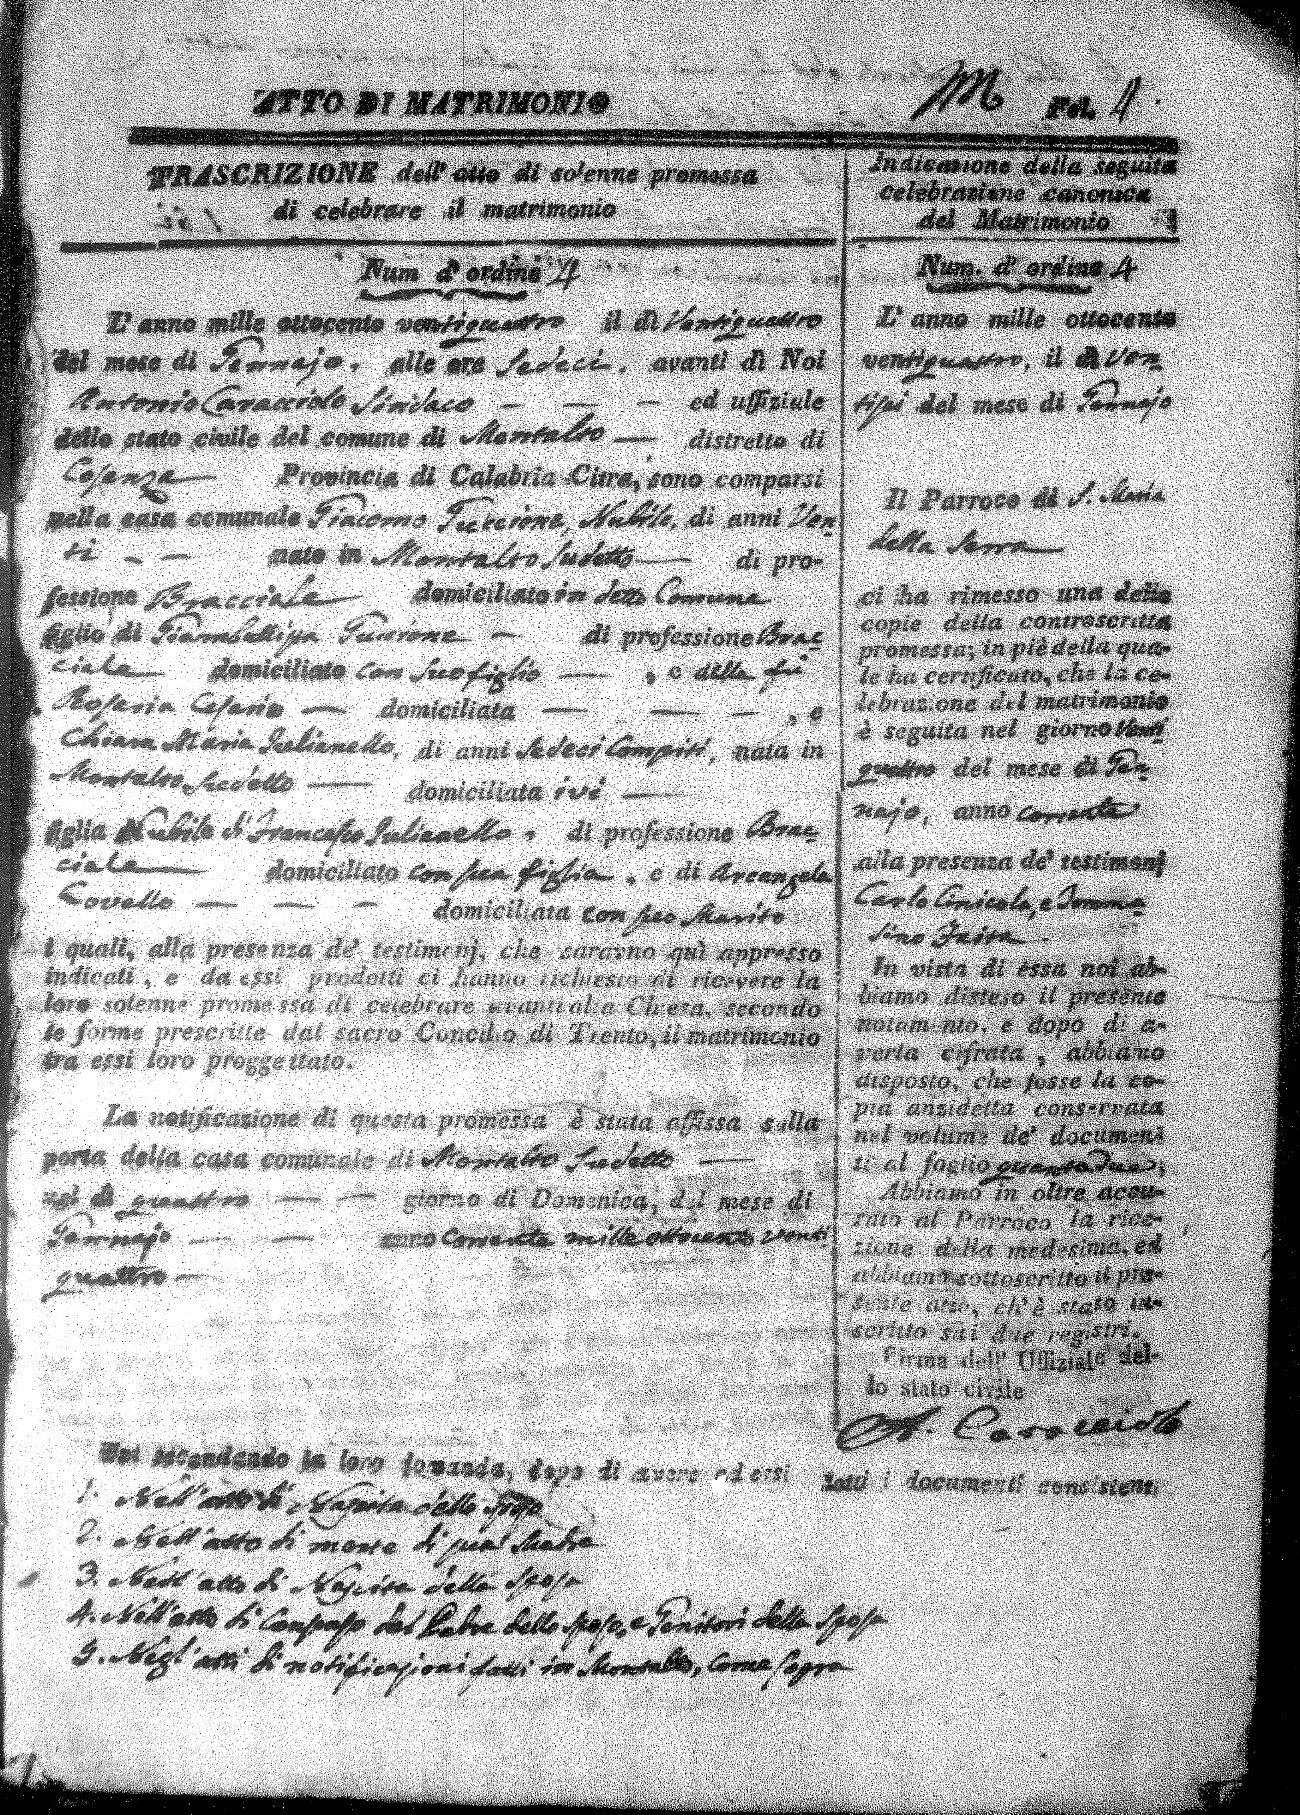 ATTO DI MATRIMONIO
M Fol. 4.
TRASCRIZIONE dell' atto di solenne promessa
di celebrare il matrimonio
Num d' ordine 4
L' anno mille ottocento ventiquattro il dì Ventiquattro
del mese di Gennajo. alle ore Sedeci. avanti di Noi
Antonio Caracciolo Sindaco — — — ed uffiziale
dello stato civile del comune di Montalto — distretto di
Cosenza — Provincia di Calabria Citra, sono comparsi
nella casa comunale Giacomo Guccione, Nubile, di anni Ven
ti - - nato in Montalto Sudetto — di pro-
fessione Bracciale domiciliato in detto Comune
figlio di Giambattista — di professione Brac
ciale domiciliato con suo figlio — , e della fù
Rosaria Cesario — domiciliata — — — , e
Chiara Maria Iulianello, di anni Sedeci Compiti, nata in
Montalto Sudetto — domiciliata ivi —
figlia Nubile di Francesco Iulianello. di professione Brac-
ciale domiciliato con sua figlia, e di Arcangela
Covello — — — domiciliata con suo Marito
i quali, alla presenza de' testimonj, che saranno quì appresso
indicati, e da essi prodotti ci hanno richiesto di ricevere la
loro solenne promessa di celebrare avanti alla Chiesa, secondo
le forme prescritte dal sacro Concilio di Trento, il matrimonio
tra essi loro proggettato.
La notificazione di questa promessa è stata affissa sulla
porta della casa comunale di Montalto Sudetto —
nel dì quattro — — giorno di Domenica, del mese di
Gennajo — — anno Corrente mille ottocento venti
quattro —
Indicazione della seguita
celebrazione canonica
del Matrimonio
Num. d' ordine 4
L' anno mille ottocento
ventiquattro, il dì Ven
del mese di Gennajo
Il Parroco di S. Maria
della Serra
ci ha rimesso una delle
copie della controscritta
promessa; in piè della qua-
le ha certificato, che la ce-
lebrazione del matrimonio
è seguita nel giorno Venti
quattro del mese di Gen-
najo, anno corrente
alla presenza de' testimonj
Carlo e Tomma
sino
In vista di essa noi ab-
biamo disteso il presente
notamento, e dopo di a-
verla cifrata, abbiamo
disposto, che fosse la co-
pia anzidetta conservata
nel volume de' documen-
ti al foglio quarantadue,
Abbiamo in oltre accu-
rato al Parroco la rice-
zione della medesima, ed
abbiamo sottoscritto il pre-
sente atto, ch' è stato in-
scritto sui due registri.
Firma dell' Uffiziale del-
lo stato civile
A. Caracciolo
Noi secondando la loro domanda, dopo di avere ad essi letti i documenti consistenti
1. Nell' atto di Nascita dello sposo
2. Nell' atto di morte di sua Madre
3. Nell' atto di Nascita della Sposa
4. Nell' atto di Consenso del Padre dello sposo, e Genitori della Sposa
5. Negl' atti di notificazioni fatti in Montalto, come sopra